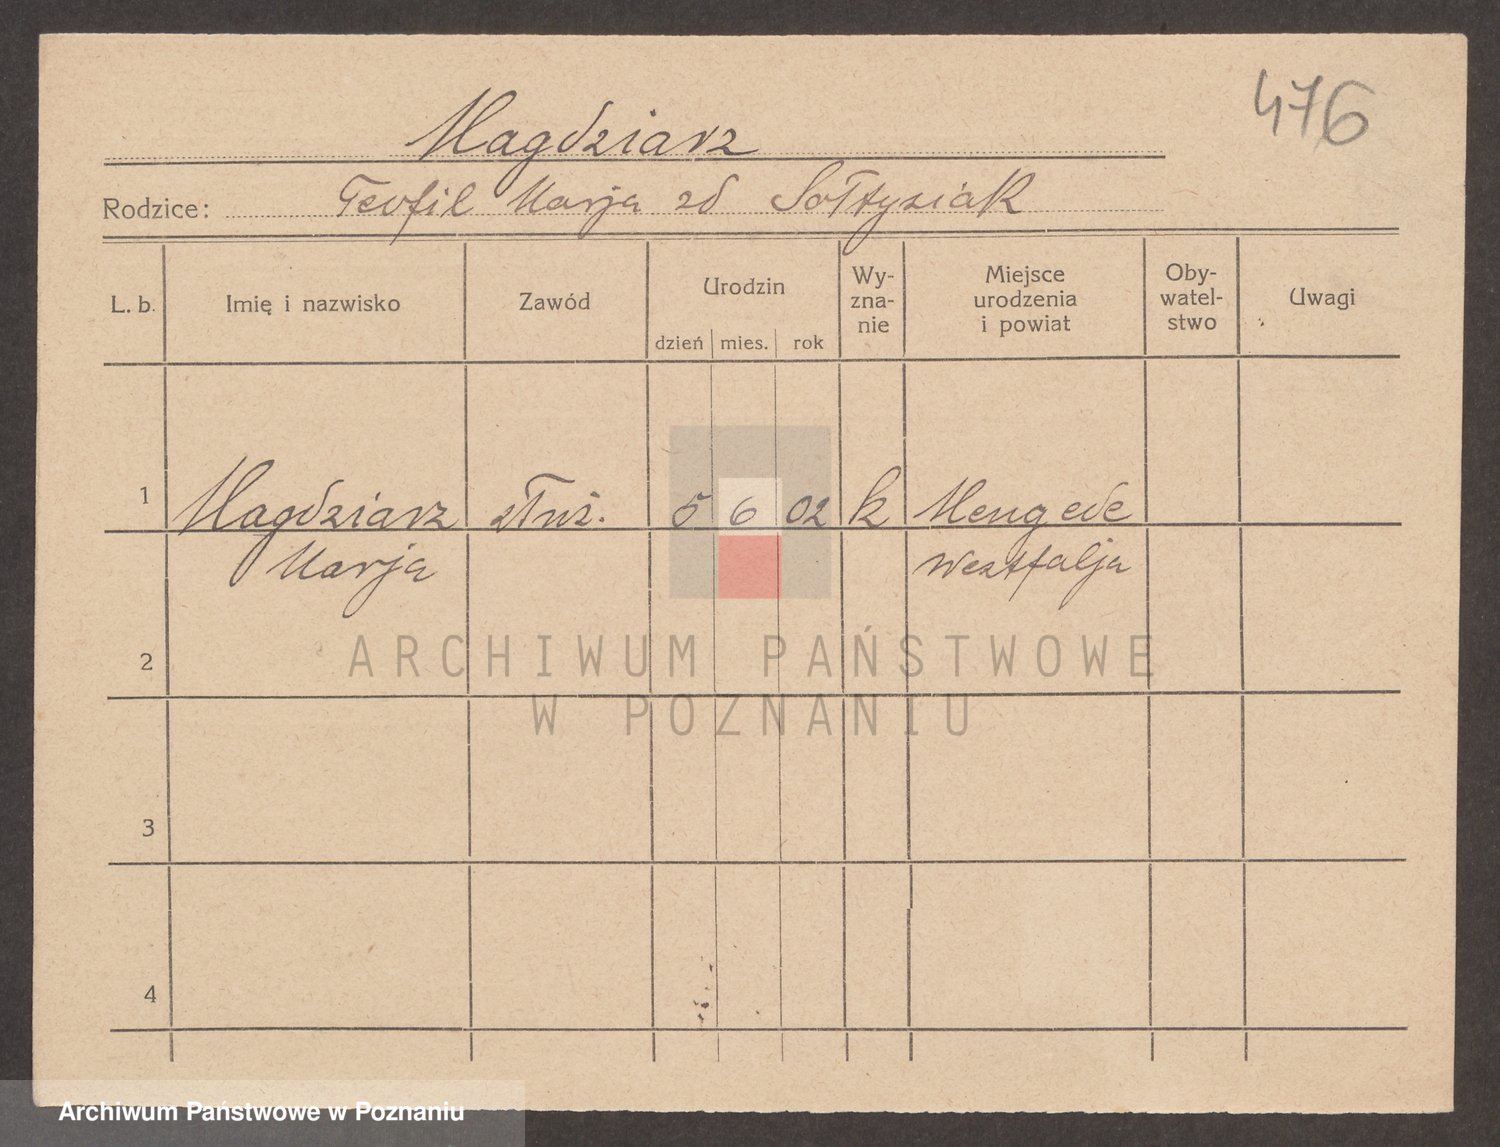 476
Magdziarz
Rodzice: Teofil Marja zd Sołtysiak
L. b. Imię i nazwisko Zawód Urodzin dzień mies. rok Wy-zna-nie Miejsce urodzenia i powiat Oby-watel-stwo Uwagi
1 Magdziarz służ. 5 6 02 k Mengede
Marja Westfalja
2
3
4
ARCHIWUM PAŃSTWOWE
W POZNANIU
Archiwum Państwowe w Poznaniu